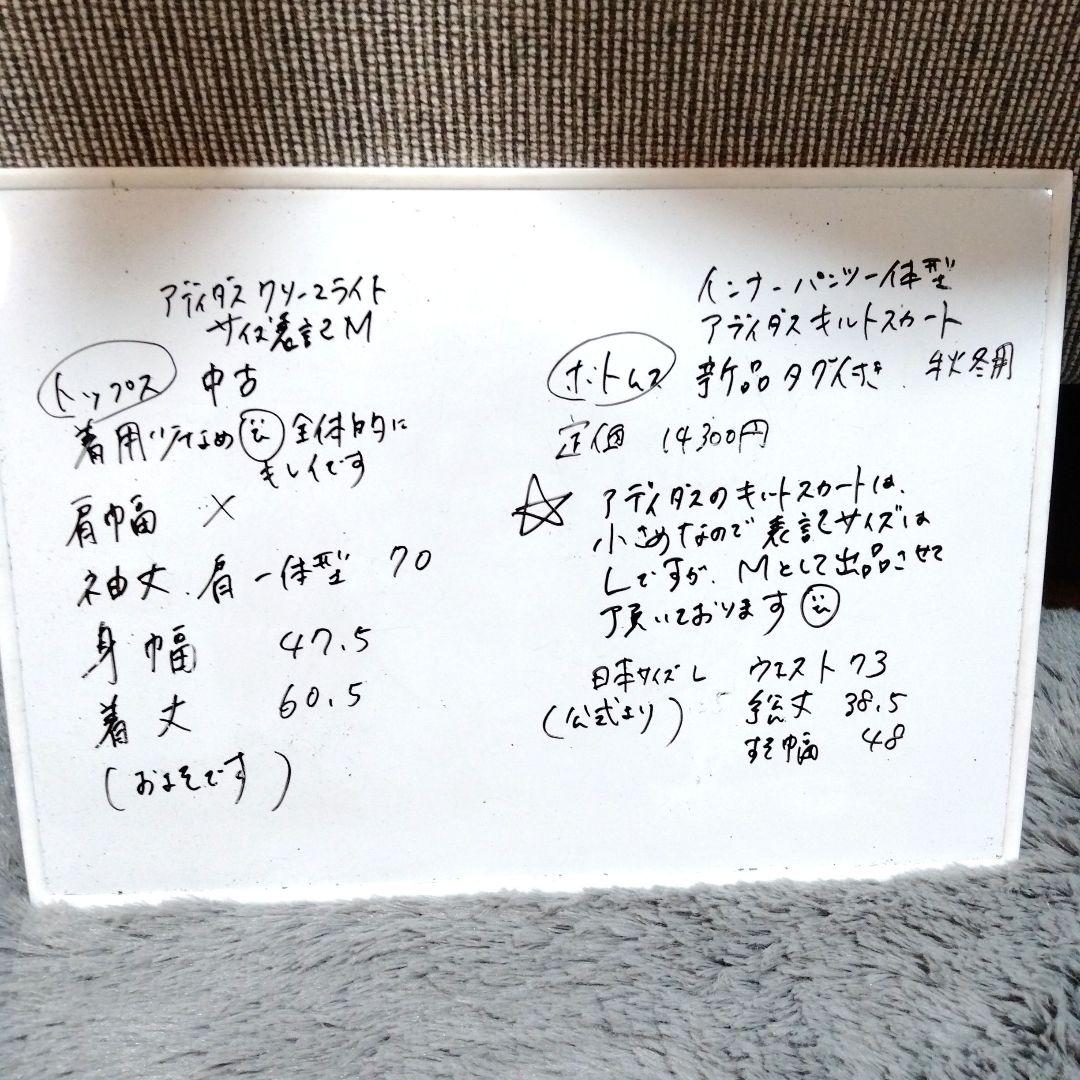 アディダス クリーマライト
サイズ表記 M
トップス 中古
着用少なめ 全体的に
キレイです
肩幅 ×
袖丈、肩一体型 70
身幅 47.5
着丈 60.5
(およそです)
インナーパンツ一体型
アディダス キルトスカート
ボトムス 新品タグ付き 秋冬用
定価 14300円
☆ アディダスのキルトスカートは、
小さめなので表記サイズは
Lですが、Mとして出品させて
頂いております
日本サイズL ウエスト 73
(公式より) 総丈 38.5
すそ幅 48